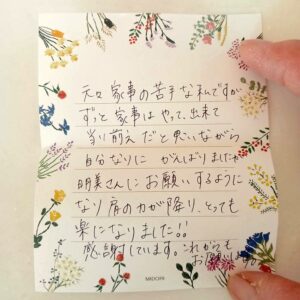 元々家事の苦手な私ですが
ずっと家事はやって、出来て
当り前えだと思いながら
自分なりに がんばりました
明美さんにお願いするように
なり肩の力が降り、とっても
楽になりました!!
感謝しています。これからも
お願いします
MIDORI